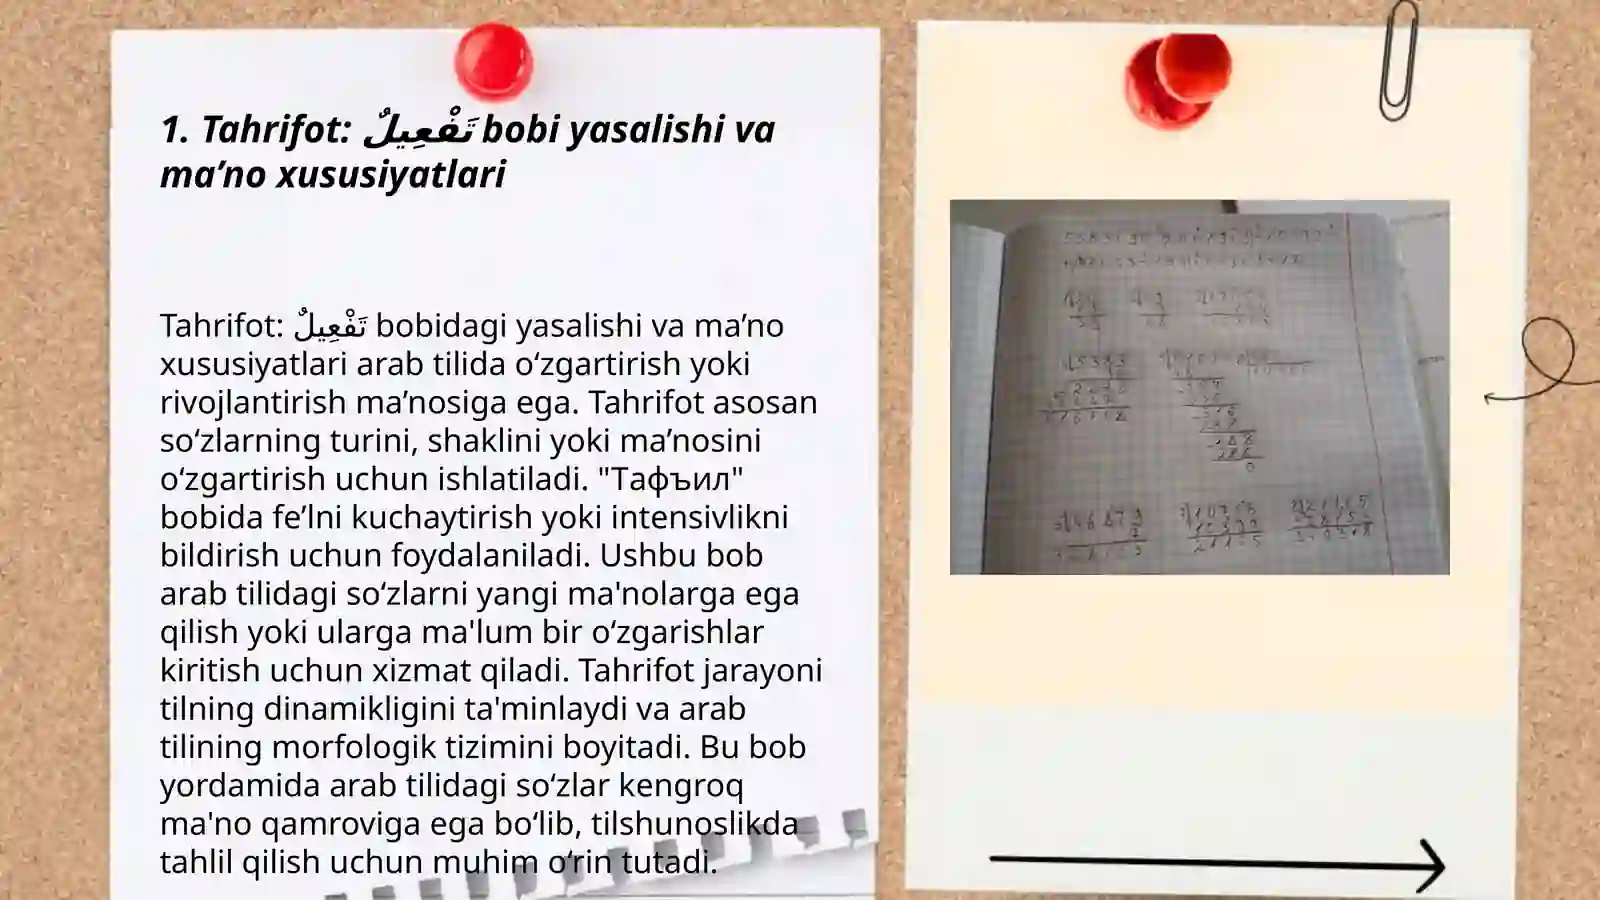 1. Tahrifot: تَفْعِيلٌ bobi yasalishi va
ma’no xususiyatlari
Tahrifot: تَفْعِيلٌ bobidagi yasalishi va ma’no
xususiyatlari arab tilida o‘zgartirish yoki
rivojlantirish ma’nosiga ega. Tahrifot asosan
so‘zlarning turini, shaklini yoki ma’nosini
o‘zgartirish uchun ishlatiladi. "Тафъил"
bobida fe’lni kuchaytirish yoki intensivlikni
bildirish uchun foydalaniladi. Ushbu bob
arab tilidagi so‘zlarni yangi ma'nolarga ega
qilish yoki ularga ma'lum bir o‘zgarishlar
kiritish uchun xizmat qiladi. Tahrifot jarayoni
tilning dinamikligini ta'minlaydi va arab
tilining morfologik tizimini boyitadi. Bu bob
yordamida arab tilidagi so‘zlar kengroq
ma'no qamroviga ega bo‘lib, tilshunoslikda
tahlil qilish uchun muhim o‘rin tutadi.